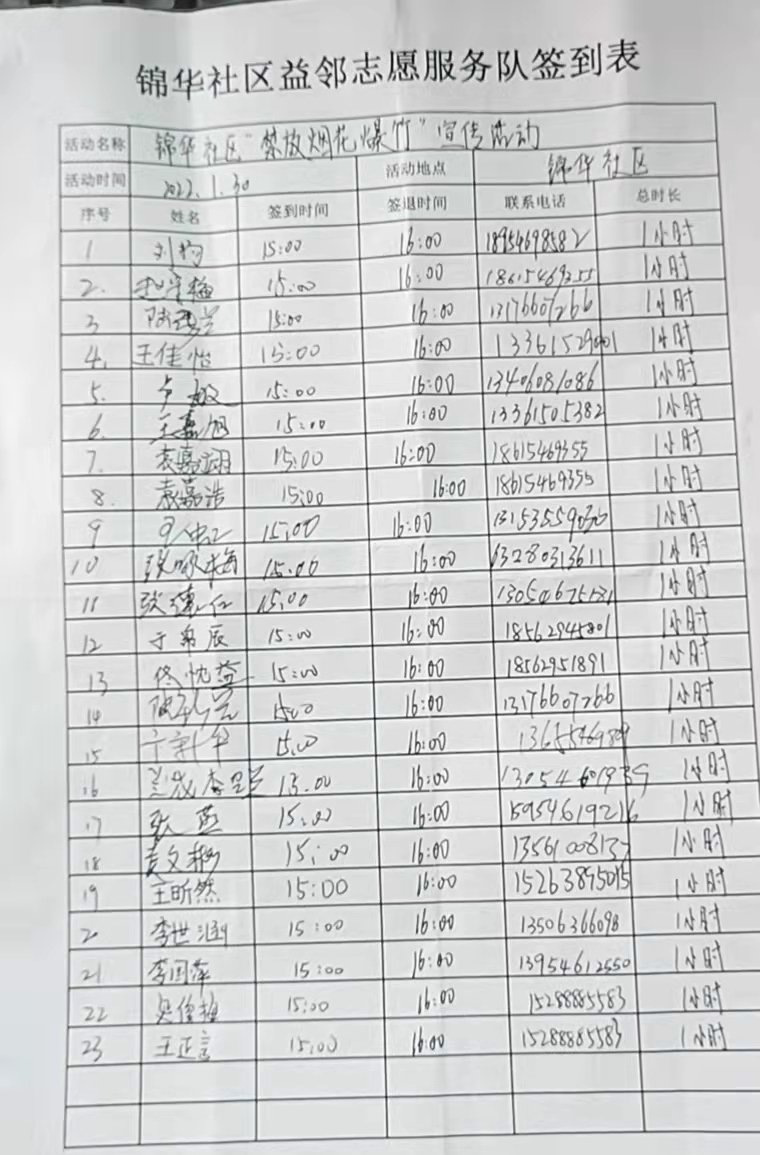 锦华社区益邻志愿服务队签到表
活动名称 锦华社区"禁放烟花爆竹"宣传活动
活动时间 2022.1.30 活动地点 锦华社区
序号 姓名 签到时间 签退时间 联系电话 总时长
1 15:00 16:00 18954698582 1小时
2. 15:00 16:00 18615469355 1小时
3 15:00 16:00 13176607266 1小时
4. 王佳怡 15:00 16:00 13361529001 1小时
5. 卢敏 15:00 16:00 13406081086 1小时
6. 王嘉旭 15:00 16:00 13361505382 1小时
7. 袁嘉翊 15:00 16:00 18615469355 1小时
8. 袁嘉浩 15:00 16:00 18615469355 1小时
9 15:00 16:00 1小时
10 15:00 16:00 63280313611 1小时
11 15:00 16:00 1小时
12 于希辰 15:00 16:00 18562945801 1小时
13 佟忱益 15:00 16:00 18562951891 1小时
14 15:00 16:00 13176607266 1小时
15 15:00 16:00 1小时
16 15:00 16:00 1小时
17 张燕 15:00 16:00 15954619216 1小时
18 15:00 16:00 13561008137 1小时
19 王昕然 15:00 16:00 15263895015 1小时
20 李世涵 15:00 16:00 13506366098 1小时
21 李国萍 15:00 16:00 13954612550 1小时
22 15:00 16:00 15288885583 1小时
23 王正言 15:00 16:00 15288885583 1小时